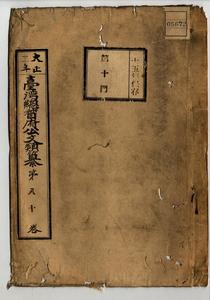 大正二年
臺灣總督府公文類纂
第五十卷
第十門
十五年保存
05672